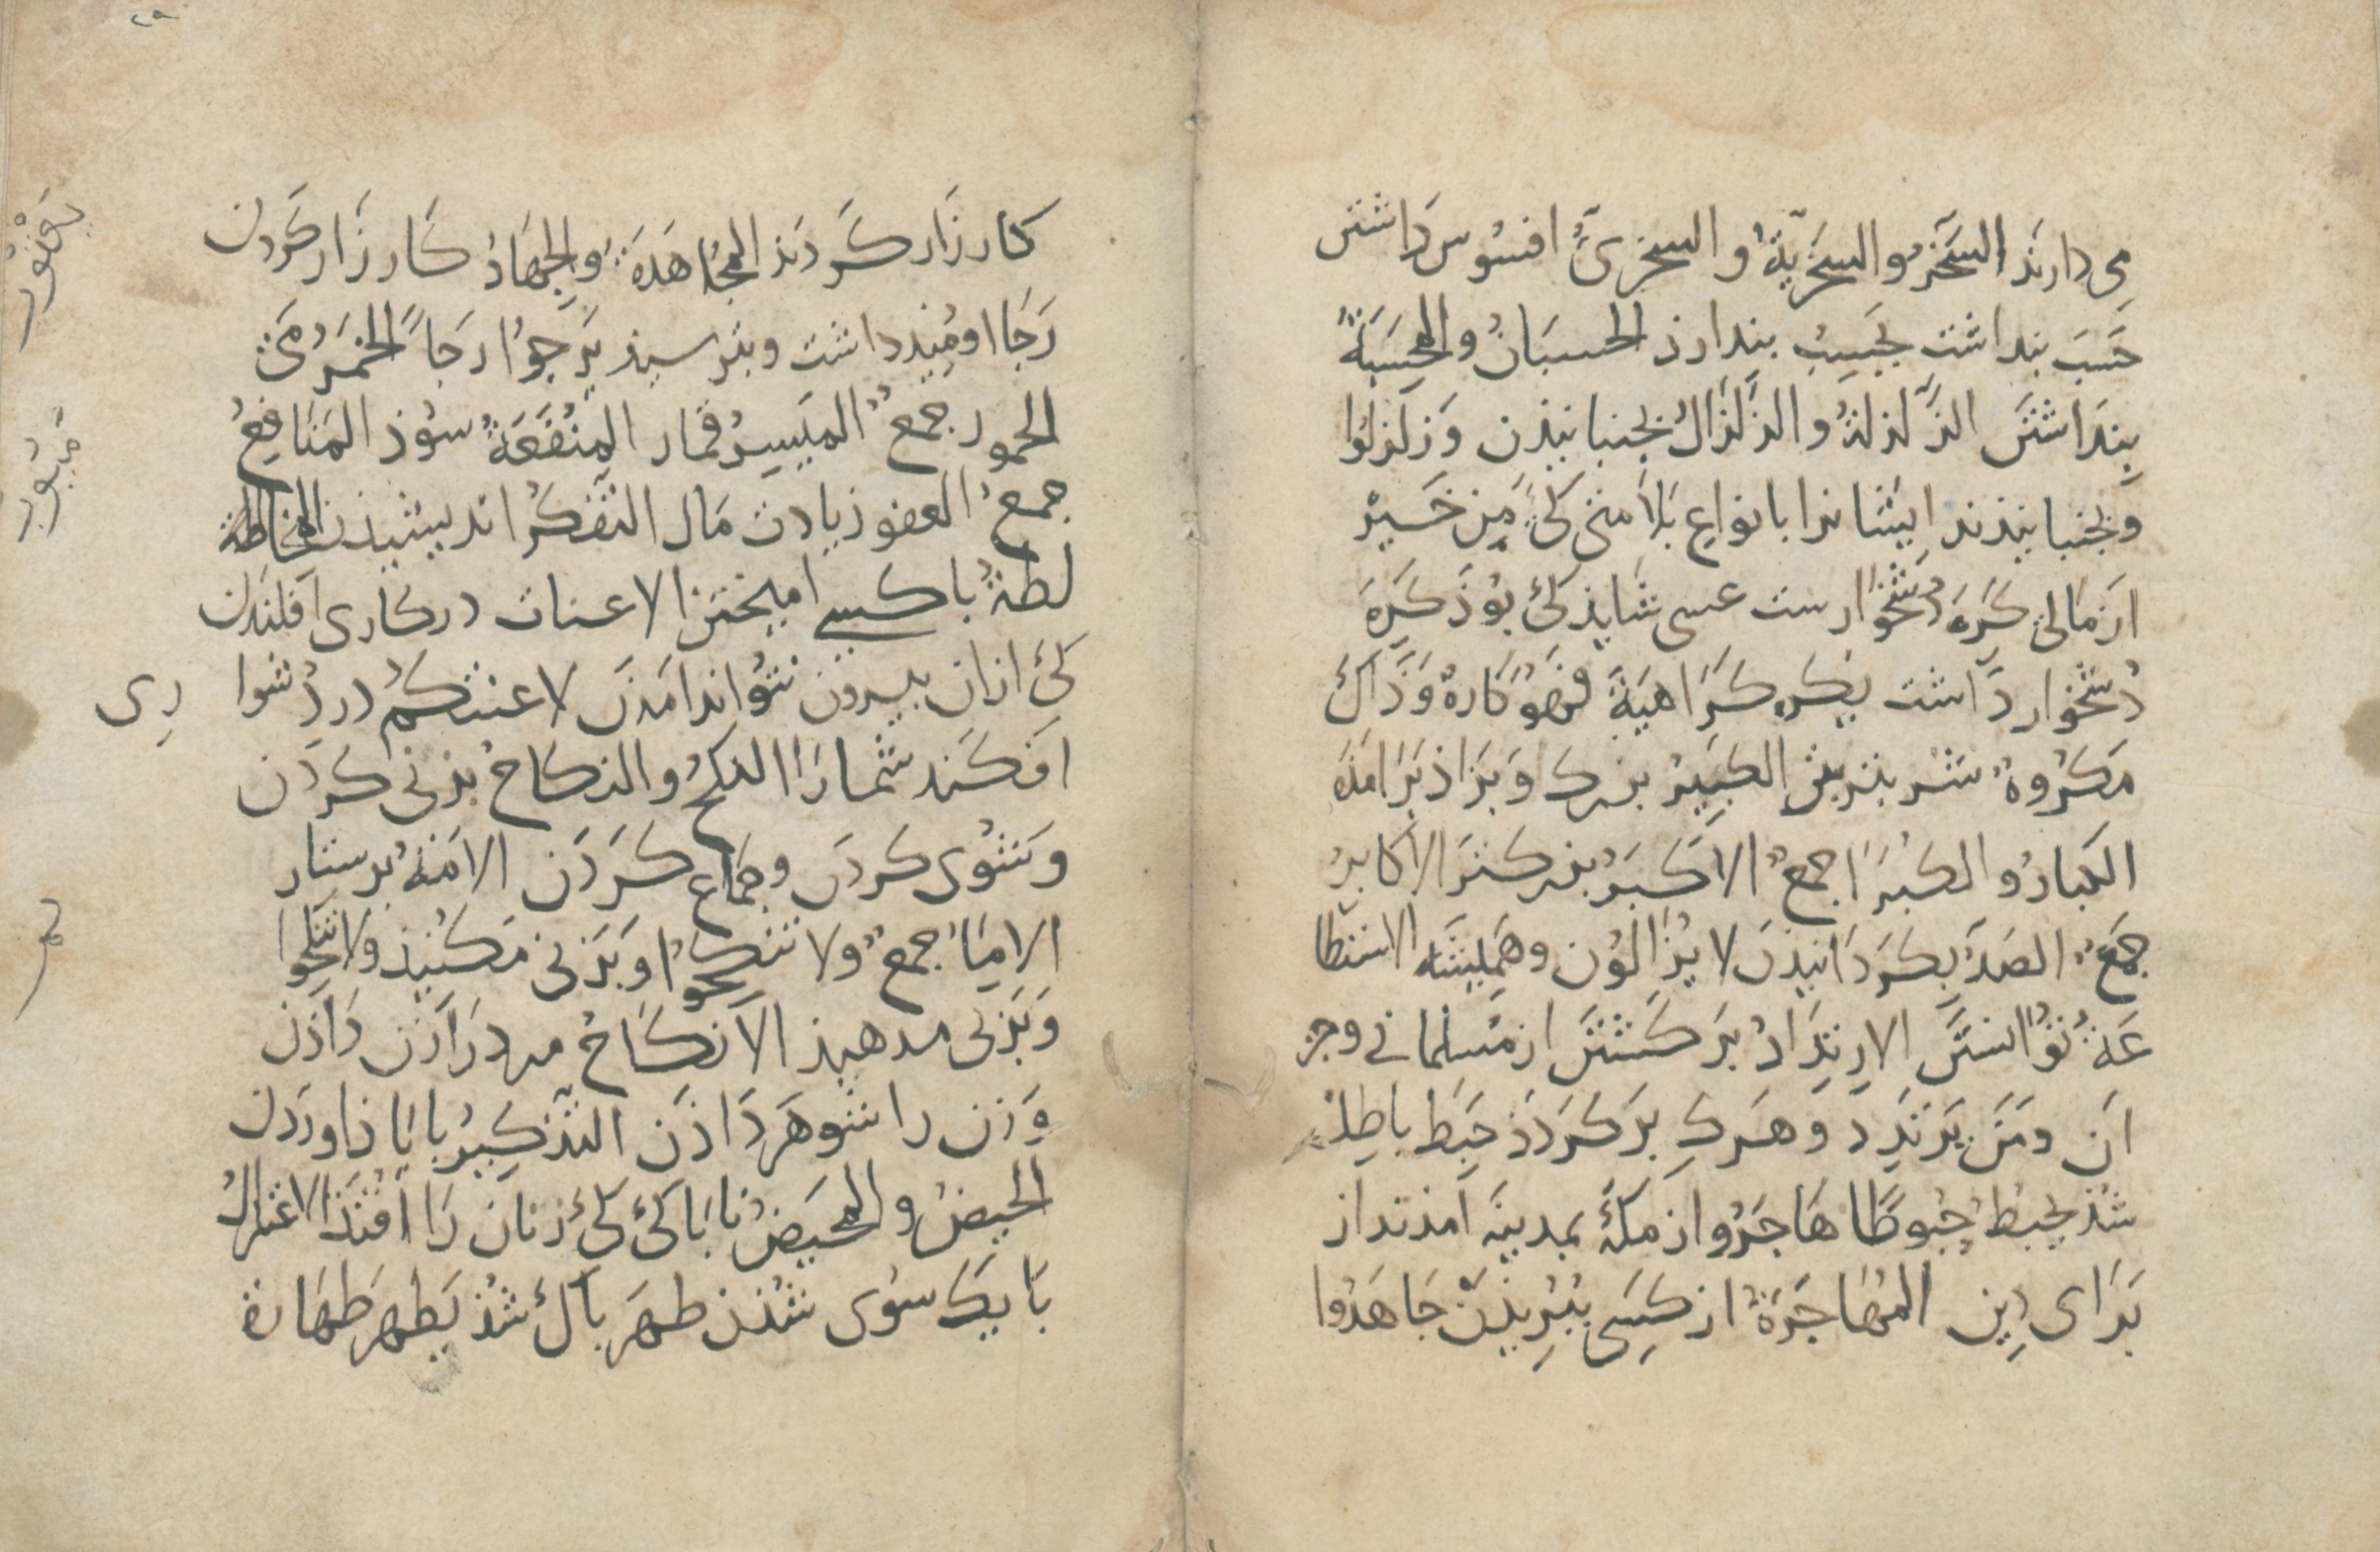 می دارند السَّخَرُ والسُّخْرِیَّةُ والسخریُّ افسُوس داشتن
حَسِبَ بنداشت یَحسِبُ بندارذ الحسبَانُ والمحسِبَةُ
بِندَاشتَن الزَّلزلةُ والزِّلزَالُ بجنبانیذن وَزلزلُوا
وبجنبانیذند ایشانرا بانواعِ بَلا متی کَیْ مِن خَیرٍ
از مَالی کُرهٌ دُشخوَارست عسی شایذ کیْ بُوذ کَرِهَ
دُشخوار دَاشت یکره کَرَاهِیَةً فهوَ کارهٌ وَذاکَ
مَکرُوهٌ شَر بتر الکبِیرُ بزرک وَبزاذ بَرامَذه
الکبارُ والکُبَرَا جمعٌ الاکبَرُ بزرکتر الاکابرُ
جَمعٌ الصَدُّ بکَردَانیدَن لایزَالُون وهَمیشَه الاستطا
عَةُ تُوَانستَن الارتِدَادُ بَرکَشتَن از مُسلمانی وجز
آن ومَن یَرتَدِد وَهَرکِ بَرکَردَذ حَبِطَ باطِل
شُذ یحبطُ حُبُوطًا هَاجَرُوا از مَکَّه بمدینَه آمذند از
بَرَای دِین المُهَاجَرَةُ از کِسَی بِبُرِیذَن جَاهَدُوا
٢٩
کارزَار کَردَند المُجَاهَدَةُ وَالجِهَادُ کَارزَار کَردن
رَجَا اومِیذ داشت وبترسیذ یَرجوُا رجَاً الخَمرُ مَی
الخمور جمعٌ المَیسِرُ قمار المنفَعَةُ سُوذ المَنَافِعُ
جمعٌ العفو زیادت مَال التفَکُّر اندیشیذن المخاطة
لطةُ باکسی امیختن الاعنات درکاری افکندن
کیْ ازان بیرون نتُواند امَدن لاعنتکُم در دُشوا
ری
افکَند شمارَا النکحُ والنکاحُ بزنی کردَن
وبشُوی کردن وجمَاع کردَن الامَةُ برستار
الامَاُ جمعٌ ولا تنکحُوا وَبَزنی مَکنیذ ولا تُنکِحُوا
وَبَزنی مدهیذ الانکَاحُ مردرَا زن دَاذن
وَزن را شوهر دَاذن التذکیرُ بایاذ آوردن
الحیضُ والمحیضُ ناباکی کیْ زنان رَا افتَذ الاعتزالُ
بَا یک سُوی شُذن طهَر باک شُذ یَطهر طهَارة